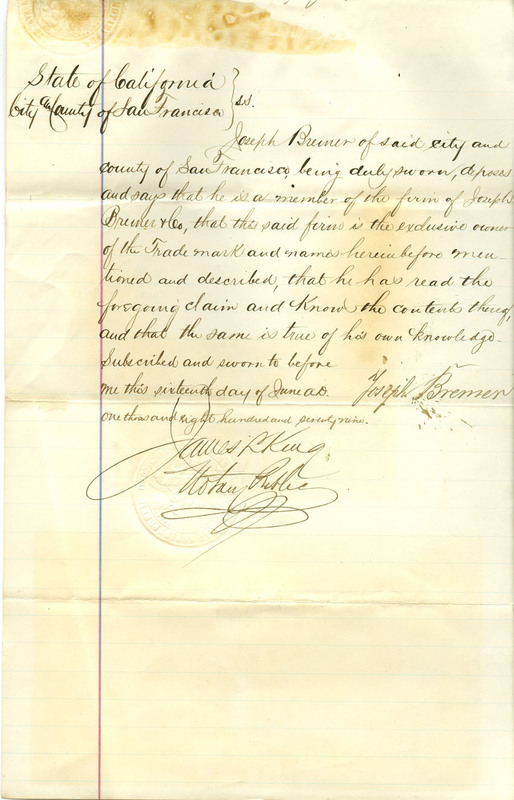 State of California
City and County of San Francisco } ss.
Joseph Bremer of said city and
county of San Francisco, being duly sworn, deposes
and says that he is a member of the firm of Joseph
Bremer & Co, that the said firm is the exclusive owner
of the Trade mark and names hereinbefore men-
tioned and described, that he has read the
foregoing claim and Know the contents thereof,
and that the same is true of his own knowledge.
Subscribed and sworn to before
me this sixteenth day of June A.D. Joseph Bremer
one thousand eight hundred and seventy nine.
James L. King
Notary Public